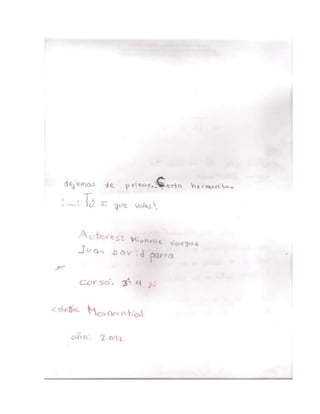 dejemos de pelear.. Cierto, hermanito
:_: Tú si que vales!
Autores: Michelle Vargas
Juan David parra
curso: 3º
colegio Manantial
año: 2.012